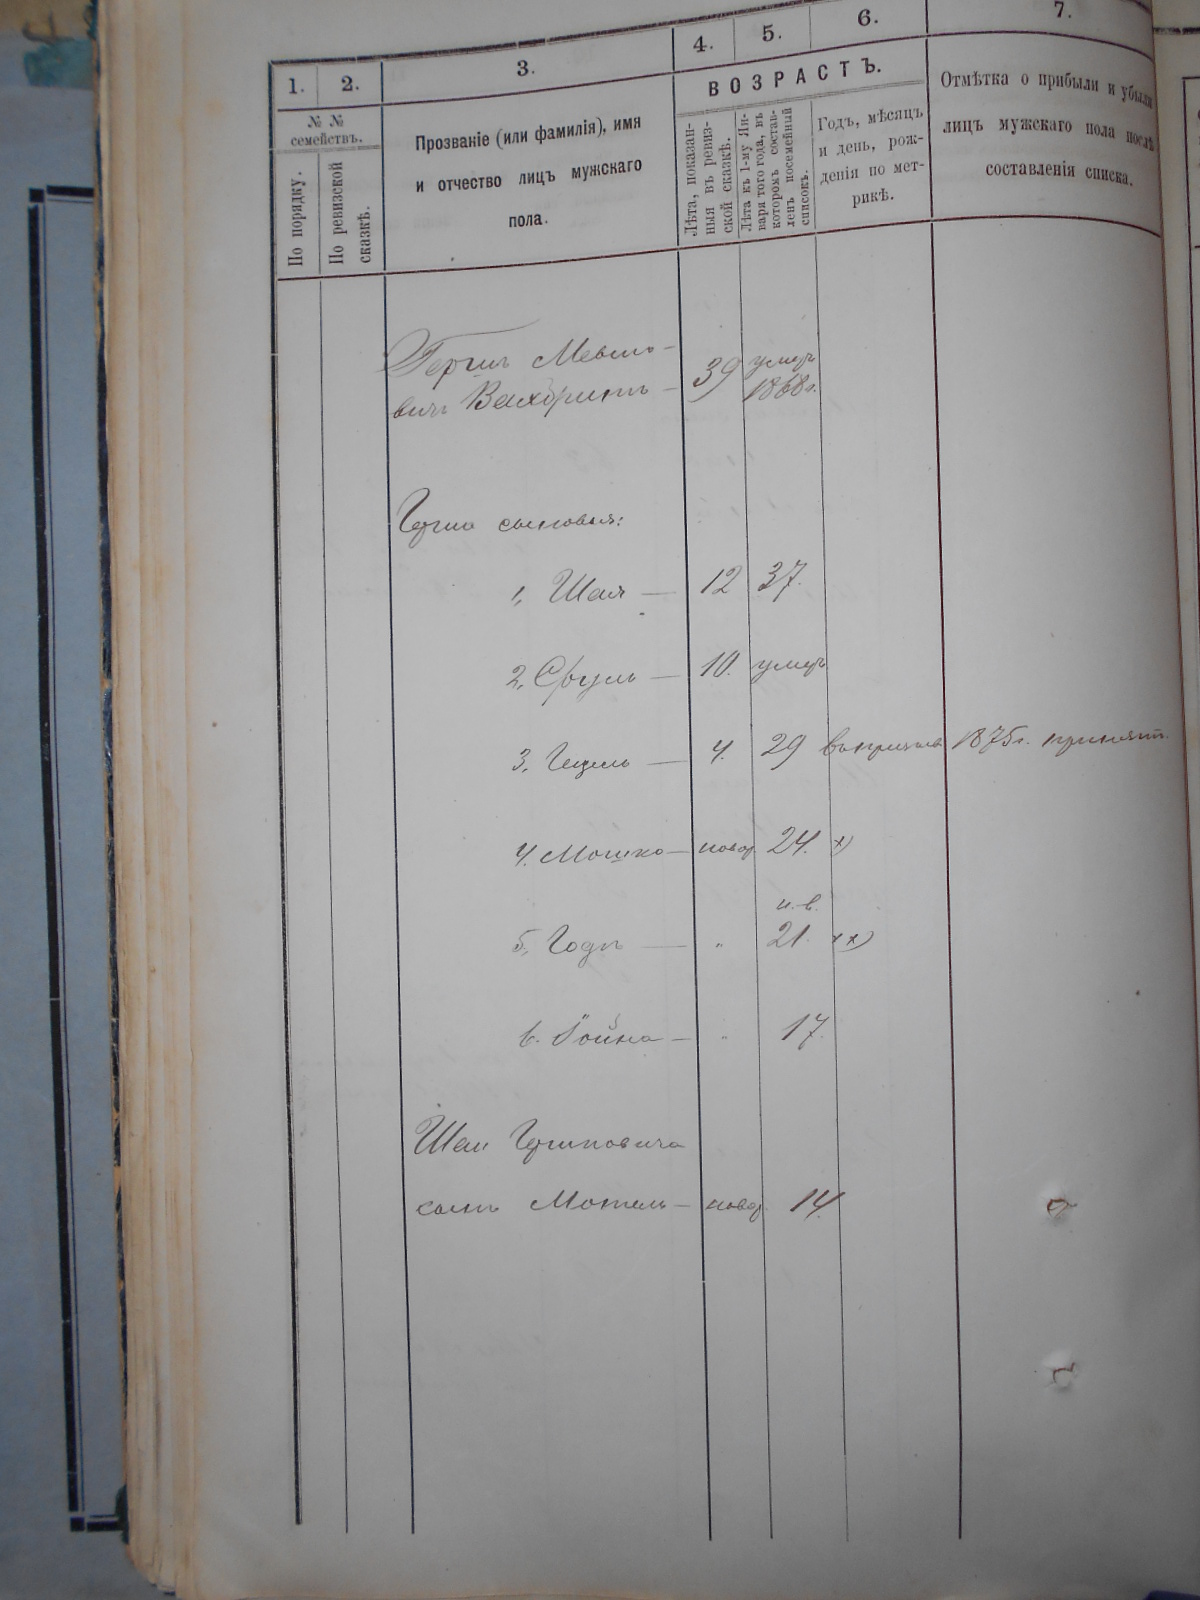 1. 2. 3. 4. 5. 6. 7.
№ №
семействъ.
По порядку.
По ревизской
сказкѣ.
Прозваніе (или фамилія), имя
и отчество лицъ мужскаго
пола.
ВОЗРАСТЪ.
Лѣта, показан-
ныя въ ревиз-
ской сказкѣ.
Лѣта къ 1-му Ян-
варя того года, въ
которомъ состав-
ленъ посемейный
списокъ.
Годъ, мѣсяцъ
и день, рож-
денія по мет-
рикѣ.
Отмѣтка о прибыли и убыли
лицъ мужскаго пола послѣ
составленія списка.
39 умеръ
вичъ 1868 г.
сыновья:
1, Шая — 12 37.
2, Сруль — 10. умеръ
3, — 4. 29 1875 г. принятъ.
4. Мошко — новор. 24. х)
н. в.
5, — " 21. хх)
6. — " 17.
Шаи
сынъ Мотель — новор. 14.